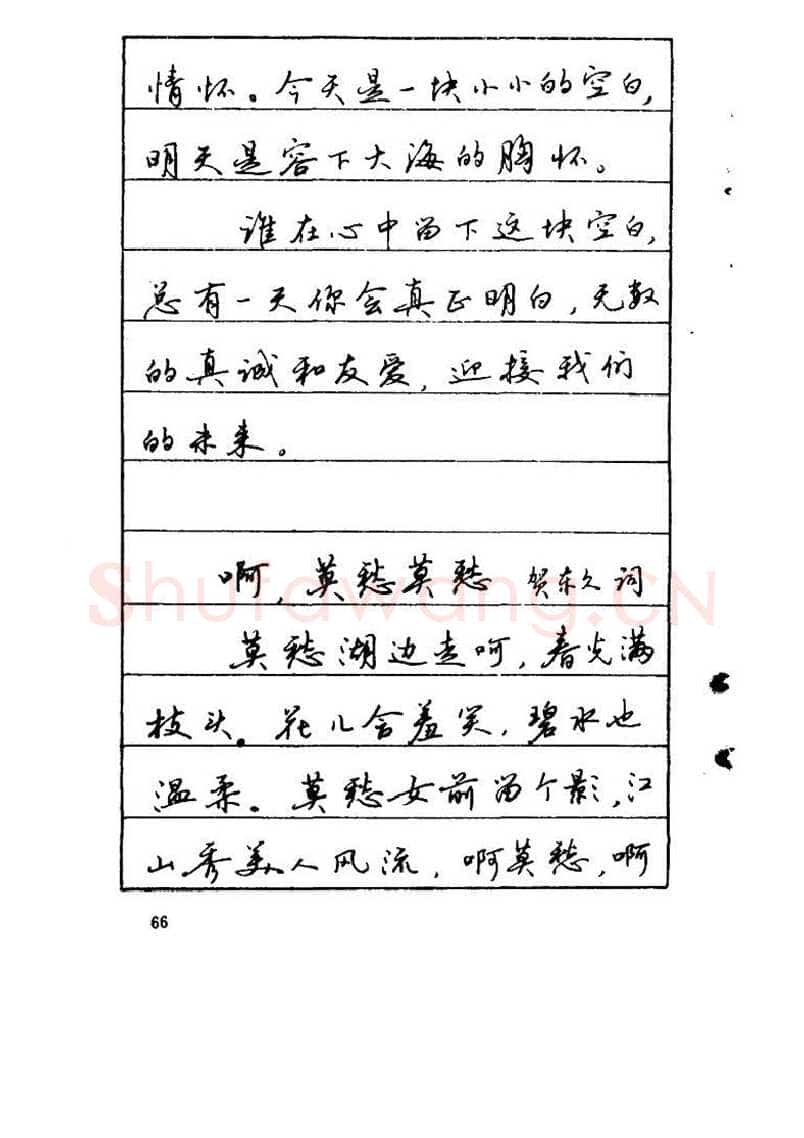 情怀。今天是一块小小的空白,
明天是容下大海的胸怀。
谁在心中留下这块空白,
总有一天你会真正明白,无数
的真诚和友爱,迎接我们
的未来。
啊,莫愁莫愁 贺东久 词
莫愁湖边走呵,春光满
枝头。花儿含羞笑,碧水也
温柔。莫愁女前留个影,江
山秀美人风流,啊莫愁,啊
66
Shufawang.CN